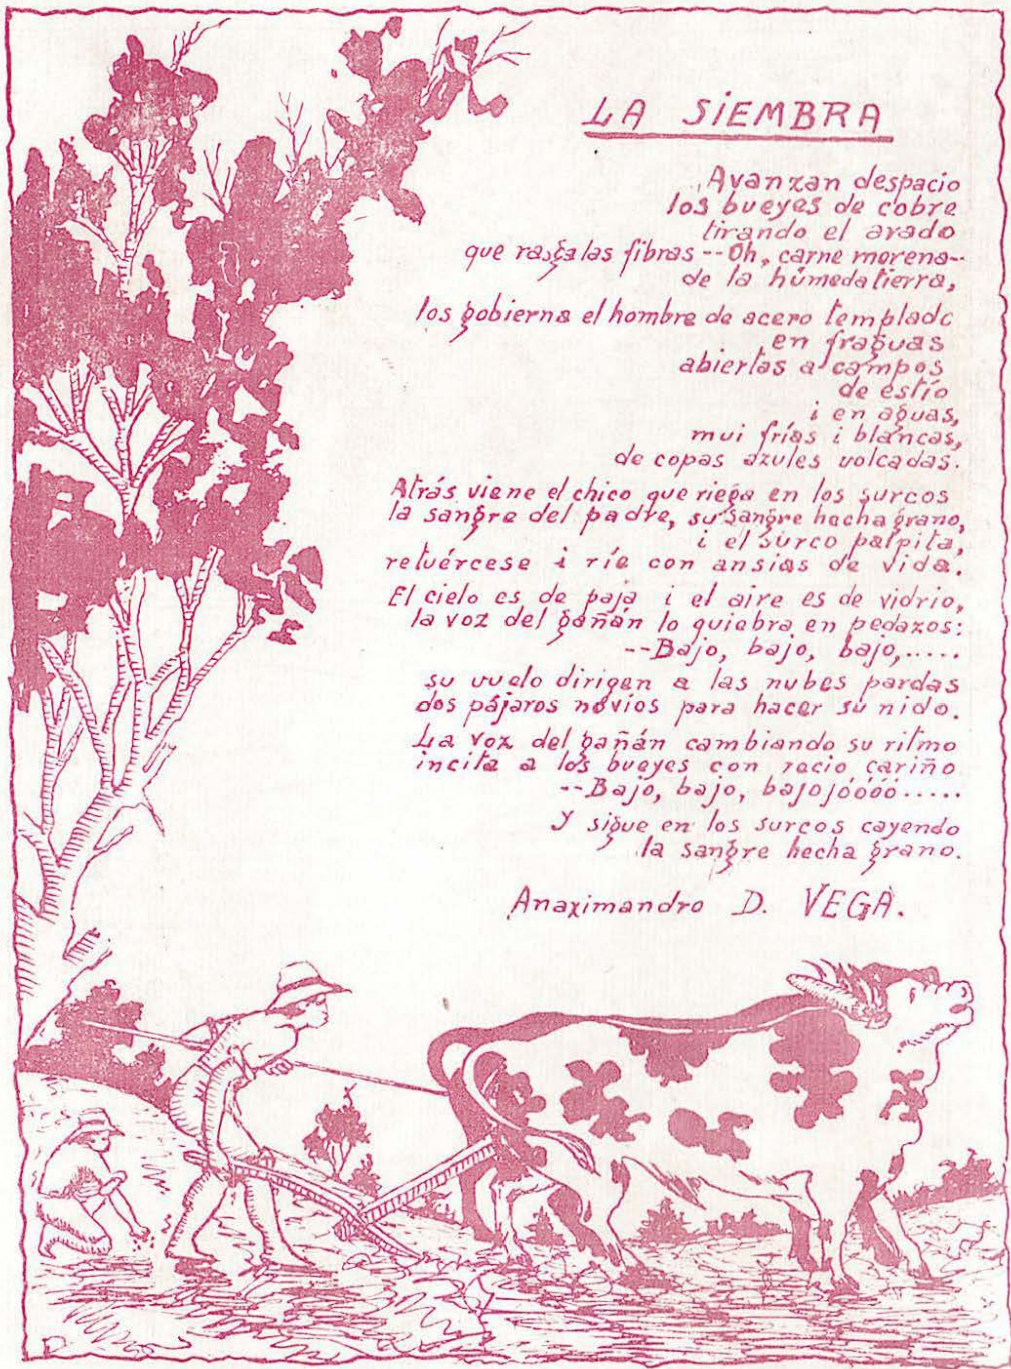 LA SiEMBRA
Avanzan despacio
los bueyes de cobre
tirando el arado
que rasga las fibras -- Oh, carne morena--
de la húmeda tierra,
los gobierna el hombre de acero templado
en fraguas
abiertas a campos
de estío
i en aguas,
mui frías i blancas,
de copas azules volcadas.
Atrás viene el chico que riega en los surcos
la sangre del padre, su sangre hecha grano,
i el surco palpita,
retuércese i ríe con ansias de vida.
El cielo es de paja i el aire es de vidrio,
la voz del gañán lo quiebra en pedazos:
--Bajo, bajo, bajo,.....
su vuelo dirigen a las nubes pardas
dos pájaros novios para hacer su nido.
La voz del gañán cambiando su ritmo
incita a los bueyes con recio cariño
--Bajo, bajo, bajojóóóó.....
Y sigue en los surcos cayendo
la sangre hecha grano.
Anaximandro D. VEGA.